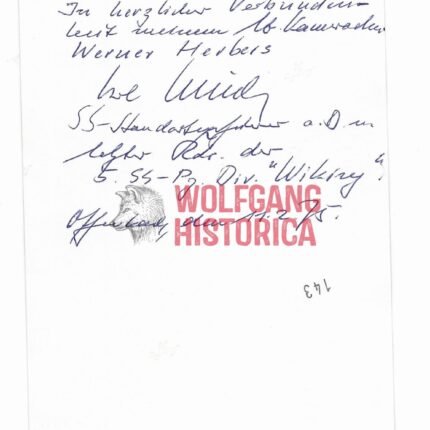 In herzlicher Verbunden-
heit meinem lb. Kameraden
Werner Herbers
SS-Standartenführer a.D. u.
letzter Kdr. der
5. SS-Pz Div. "Wiking".
Offenbach, den 11.2.75.
WOLFGANG
HISTORICA
143